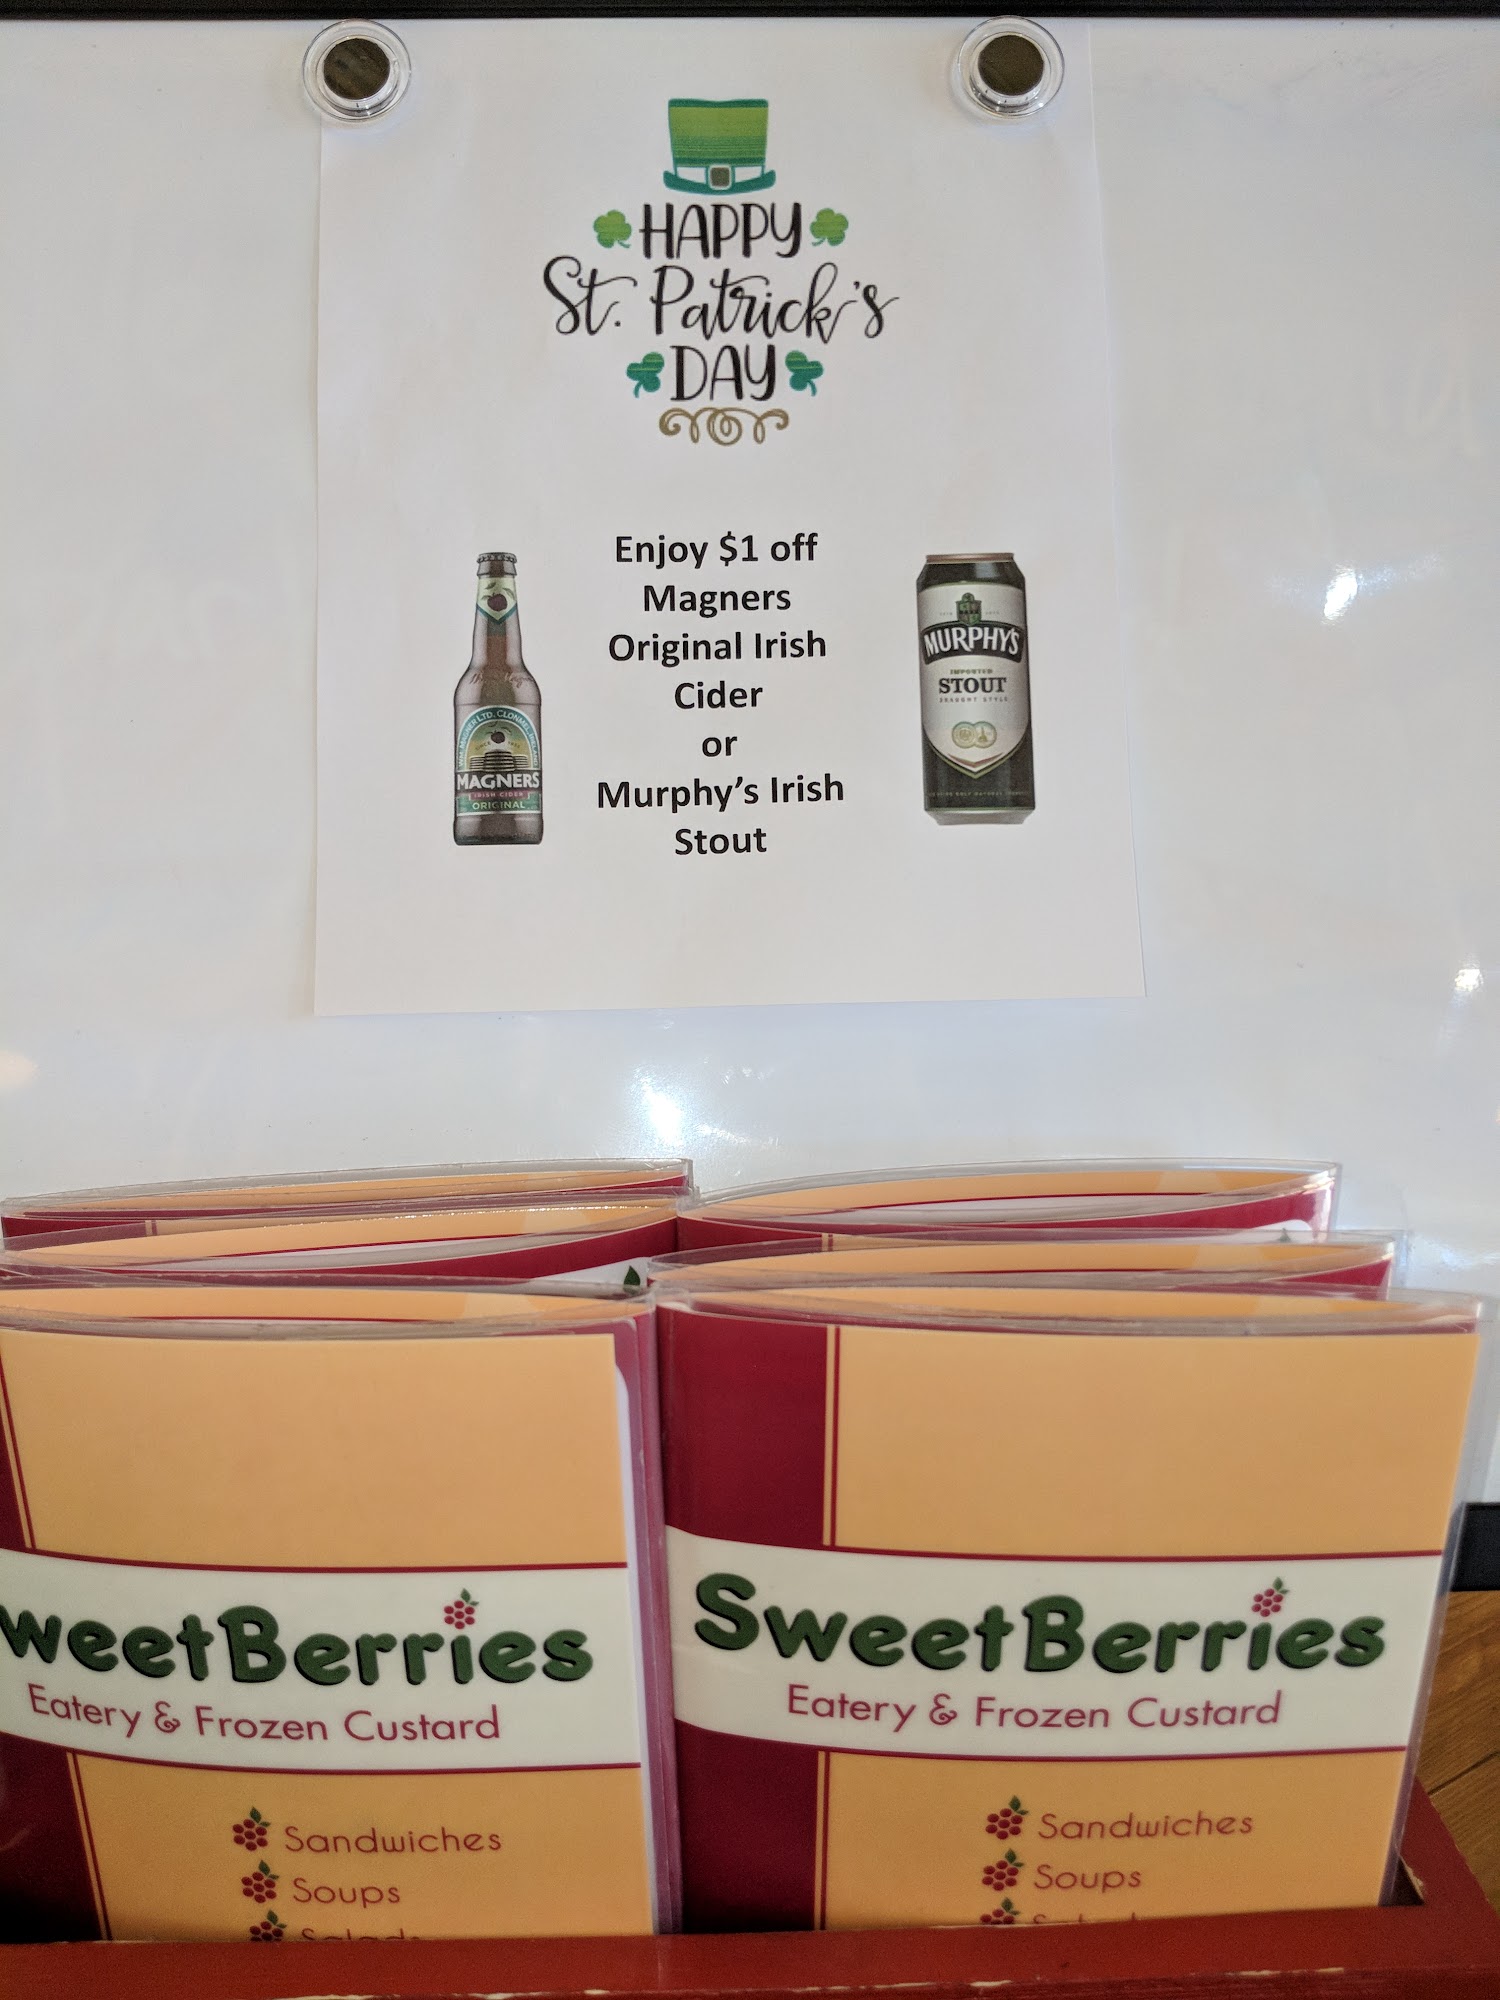 HAPPY
St. Patrick's
DAY
Enjoy $1 off
Magners
Original Irish
Cider
or
Murphy's Irish
Stout
MAGNERS
IRISH CIDER
ORIGINAL
MURPHY'S
IMPORTED
STOUT
DRAUGHT STYLE
weetBerries
Eatery & Frozen Custard
Sandwiches
Soups
Salads
SweetBerries
Eatery & Frozen Custard
Sandwiches
Soups